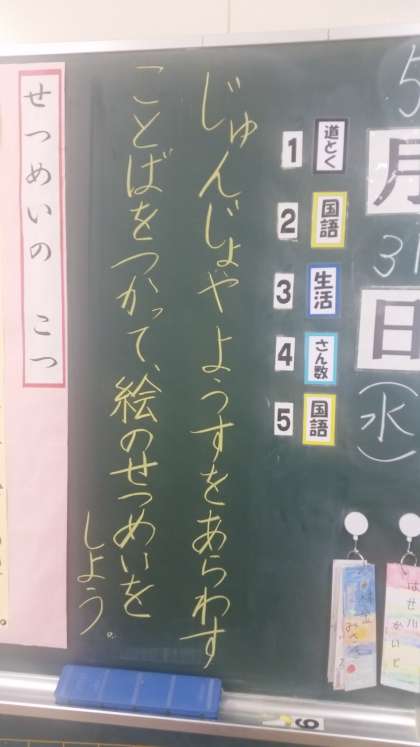 5
月
31
日
(水)
1 道とく
2 国語
3 生活
4 さん数
5 国語
じゅんじょや ようすをあらわす
ことばをつかって、絵のせつめいを
しよう。
せつめいの こつ
6